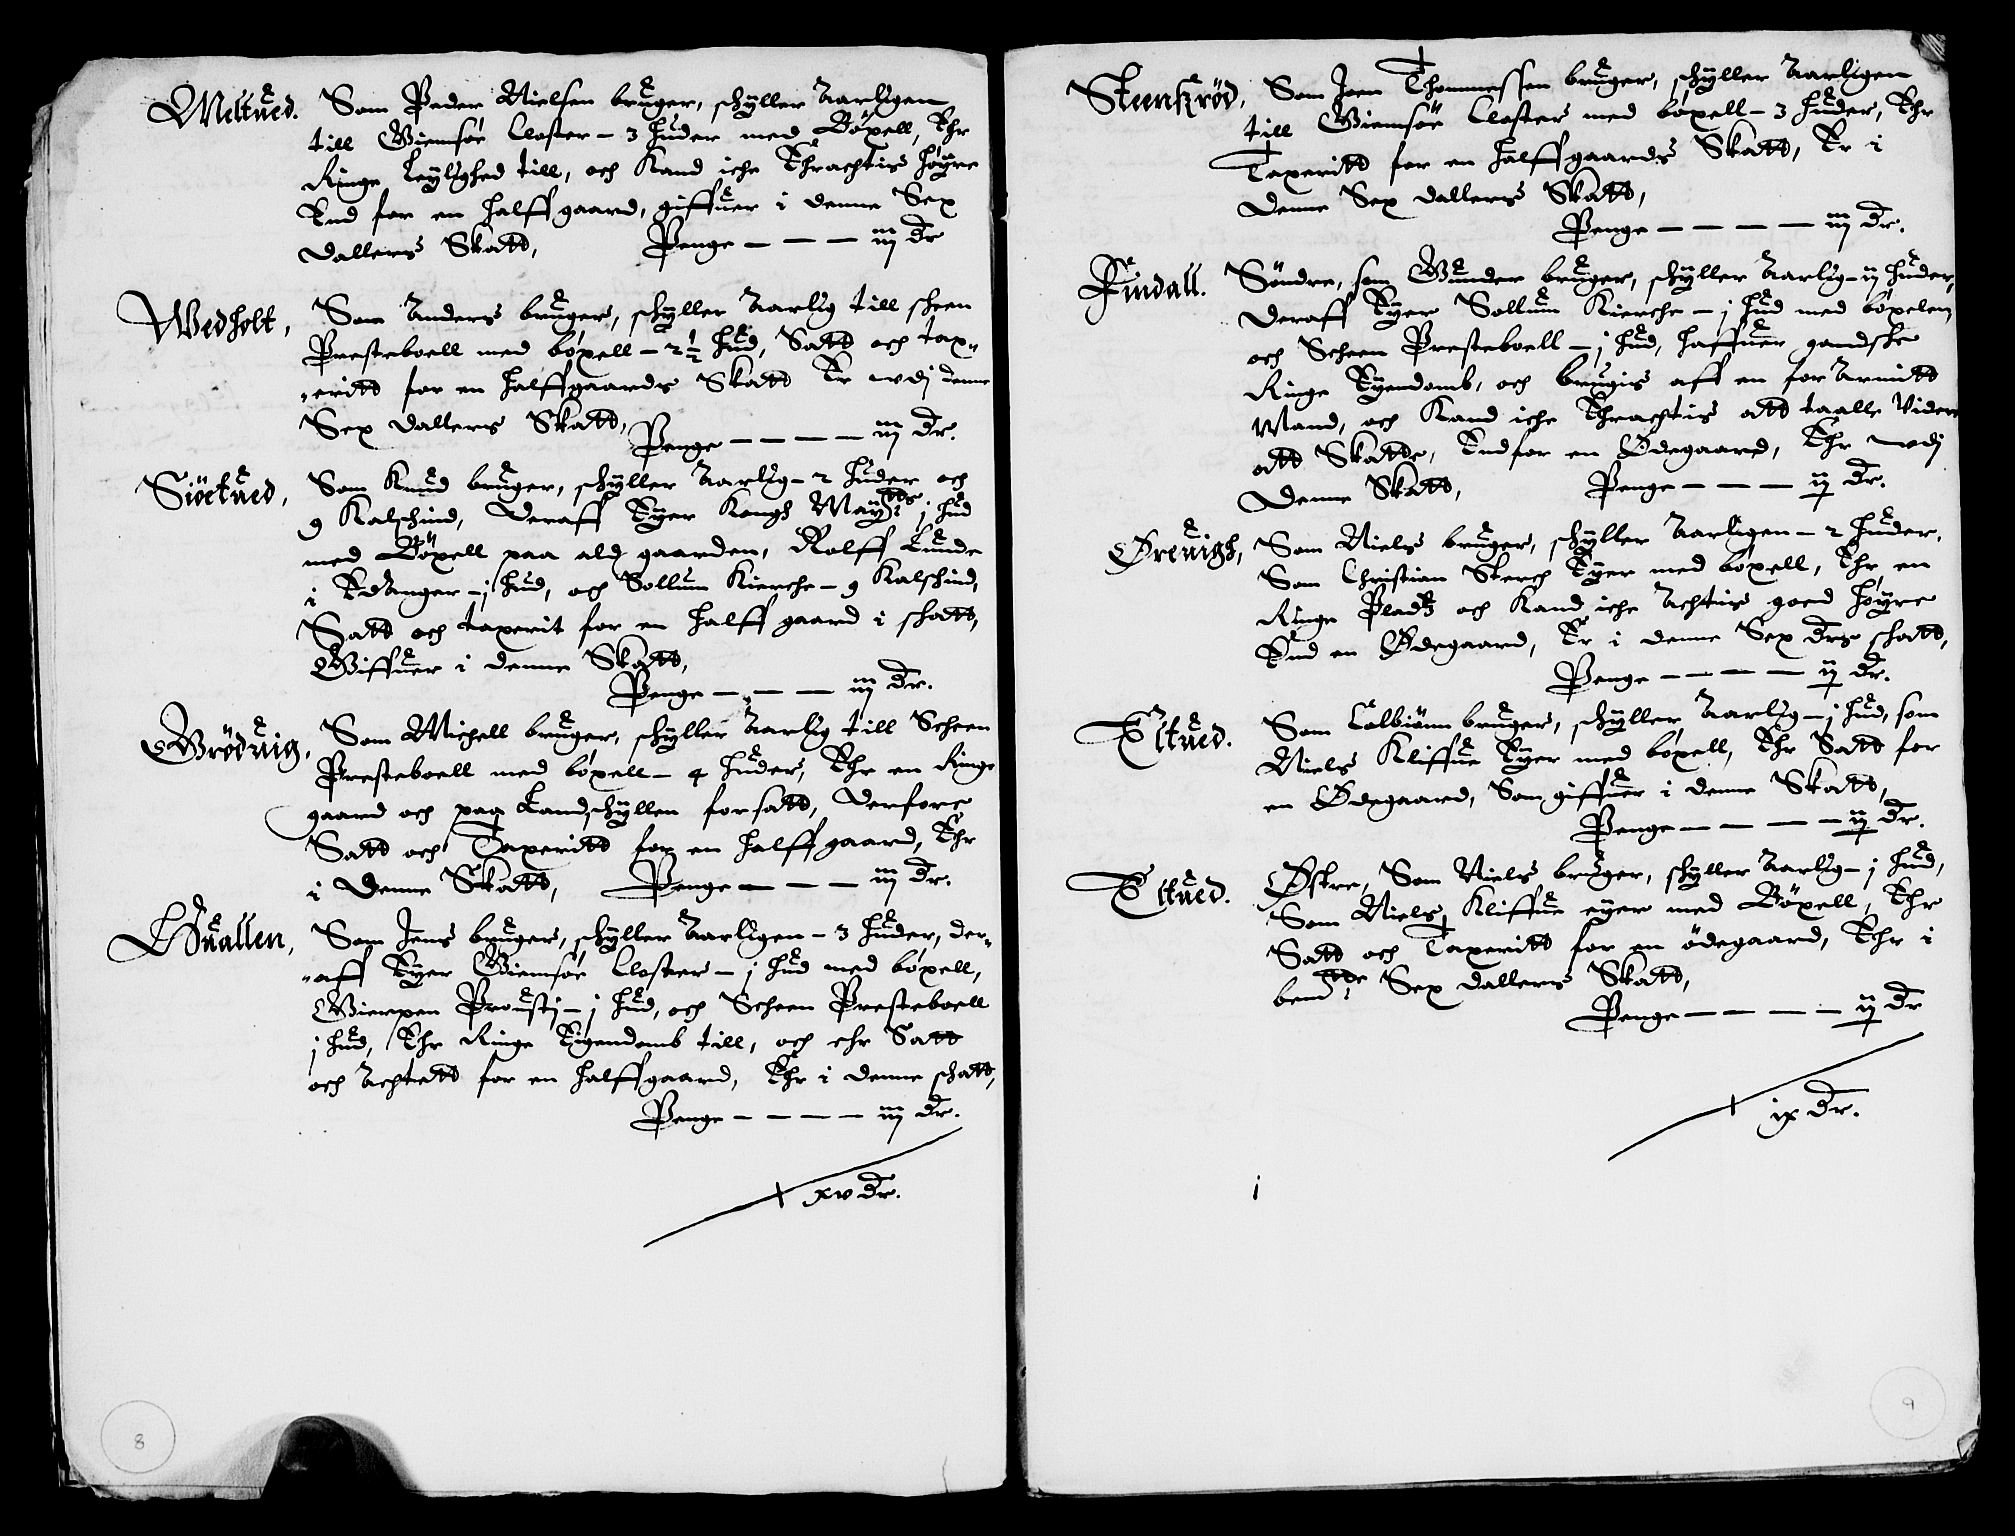 Meltued. Som Peder Nielsen bruger, schyller Aarligen
till Giemsøe Closter – 3 huder med Böxell, Ehr
Ringe Leylighed till, och Kand iche Ehrachtis høyre
End for en halff gaard, giffuer i denne Sex
dallers Skatt, Penge – – – iij dr
Wedholt, Som Anders bruger, schyller Aarlig till scheen
Presteboell med böxell – 2½ hud, Satt och tax„
„eritt for en halffgaards Skatt Er udj denne
Sex dallers Skatt,
Penge – – – – iij dr.
Siöetued, Som Knud bruger, schyller Aarlig – 2 huder och
9 Kalschind, Deraff Eyer Kongh Maytts j hud
med Böxell paa ald gaarden, Rolff Lunde
i Edanger – j hud, och Sollum Kierche – 9 Kalschind,
Satt och taxerit for en halff gaard i schatt,
Giffuer i denne Skatt,
Penge – – – iij dr.
Gröduig, Som Michell bruger, schyller Aarlig till Scheen
Presteboell med böxell – 4 huder, Ehr en Ringe
gaard och paa Landschyllen forsatt, Derfore
Satt och Taxeritt for en halff gaard, Ehr
i Denne Skatt, Penge – – – iij dr.
Huallen, Som Jens bruger, schyller Aarligen – 3 huder, der„
„aff Eyer Giemsøe Closter – j hud med böxell,
Gierpen Proustj – j hud, och Scheen Presteboell
j hud, Ehr Ringe Eigendomb till, och ehr Satt
och Achtett for en halffgaard, Ehr i denne schatt,
Penge – – – – iij dr.
xv dr.
8
Steensrød, Som Joen Thommessen bruger, schyller Aarligen
till Giemsøe Closter med böxell – 3 huder, Ehr
Taxeritt for en halffgaards Skatt, Er i
Denne Sex dallers Skatt,
Penge – – – – iij dr.
Findall. Söndre, som Gunder bruger, schyller Aarlig – ij huder,
Deraff Eyer Sollum Kierche – j hud med böxelen,
och Scheen Presteboell – j hud, haffuer gandske
Ringe Eyendomb, och brugis aff en for Armitt
Mand, och Kand iche Ehrachtis att taalle Videre
att Skatte, End for en Ødegaard, Ehr udj
Denne Skatt, Penge – – – ij dr.
Øreuigh, Som Niels bruger, schyller Aarligen – 2 huder,
Som Christian Sterch Eyer med böxell, Ehr en
Ringe Pladtz och Kand iche Achtis goed høyre
End en Ødegaard, Er i denne Sex drs schatt,
Penge – – – – ij dr.
Eltued. Som Calbiönn bruger, schyller Aarlig – j hud, som
Niels Kliffue Eyer med böxell, Ehr Satt for
en Ødegaard, Som giffuer i denne Skatt,
Penge – – – – ij dr.
Eltued. Østre, Som Niels bruger, schyller Aarlig – j hud,
Som Niels Kliffue eyer med Böxell, Ehr
Satt och Taxeritt for en ödegaard, Ehr i
bemtte Sex dallers Skatt,
Penge – – – – ij dr
ix dr.
9